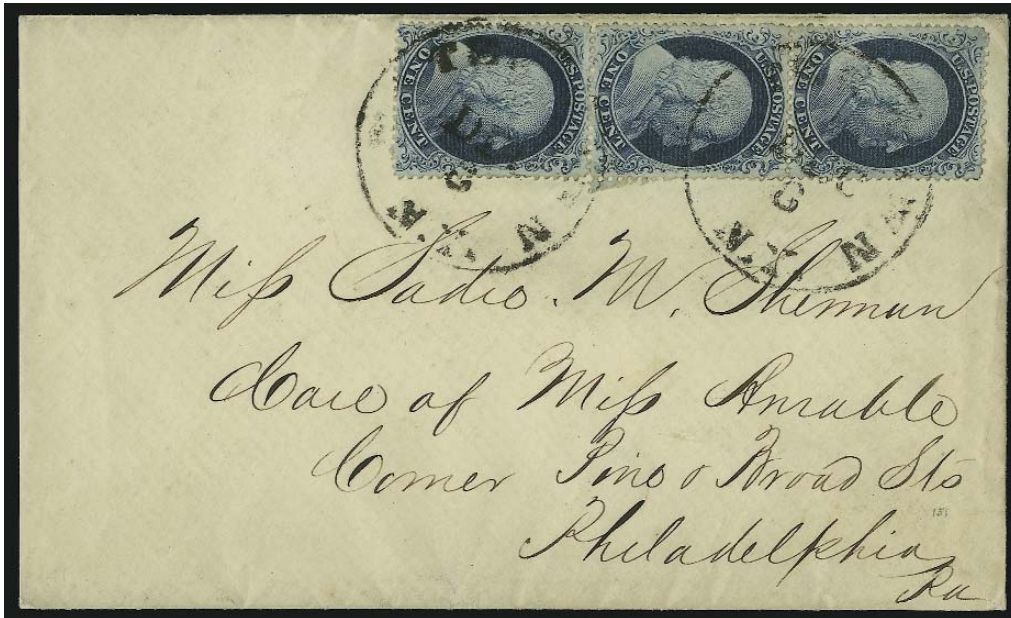 U.S. POSTAGE
ONE CENT
U.S. POSTAGE
ONE CENT
U.S. POSTAGE
ONE CENT
N.Y.
N.Y.
Miss Sadie. M. Sherman
Care of Miss Amable
Corner Pine & Broad Sts
Philadelphia
Pa
151